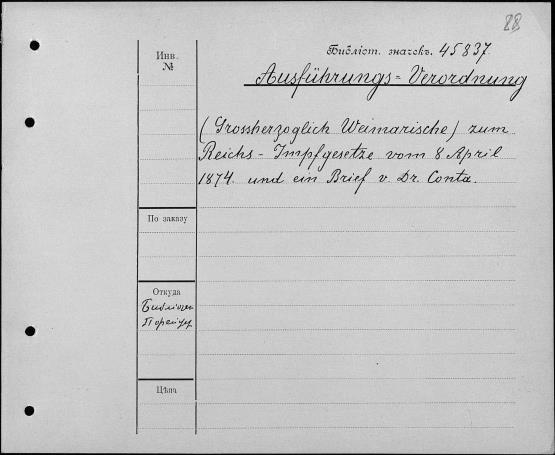 88
Библіот. значекъ. 45837
Инв.
№
Ausführungs = Verordnung
(Grossherzoglich Weimarische) zum
Reichs - Impfgesetze vom 8 April
1874. und ein Brief v. Dr. Conta.
По заказу
Откуда
Цѣна